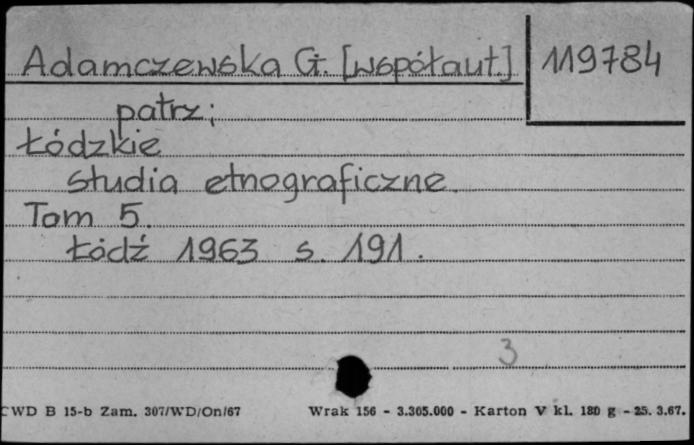 Adamczewska G. [współaut.] 119784
patrz;
Łódzkie
studia etnograficzne.
Tom 5.
Łódź 1963 s. 191.
3
CWD B 15-b Zam. 307/WD/On/67 Wrak 156 - 3.305.000 - Karton V kl. 180 g - 25. 3.67.